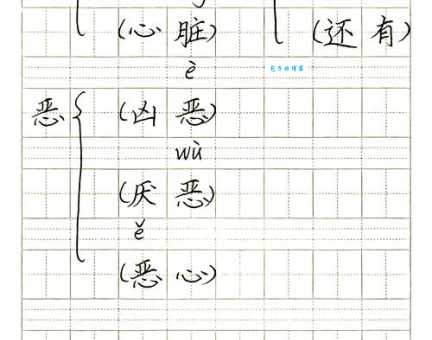 (心脏) (还有)
è
恶 { (凶恶)
wù
(厌恶)
ě
(恶心)